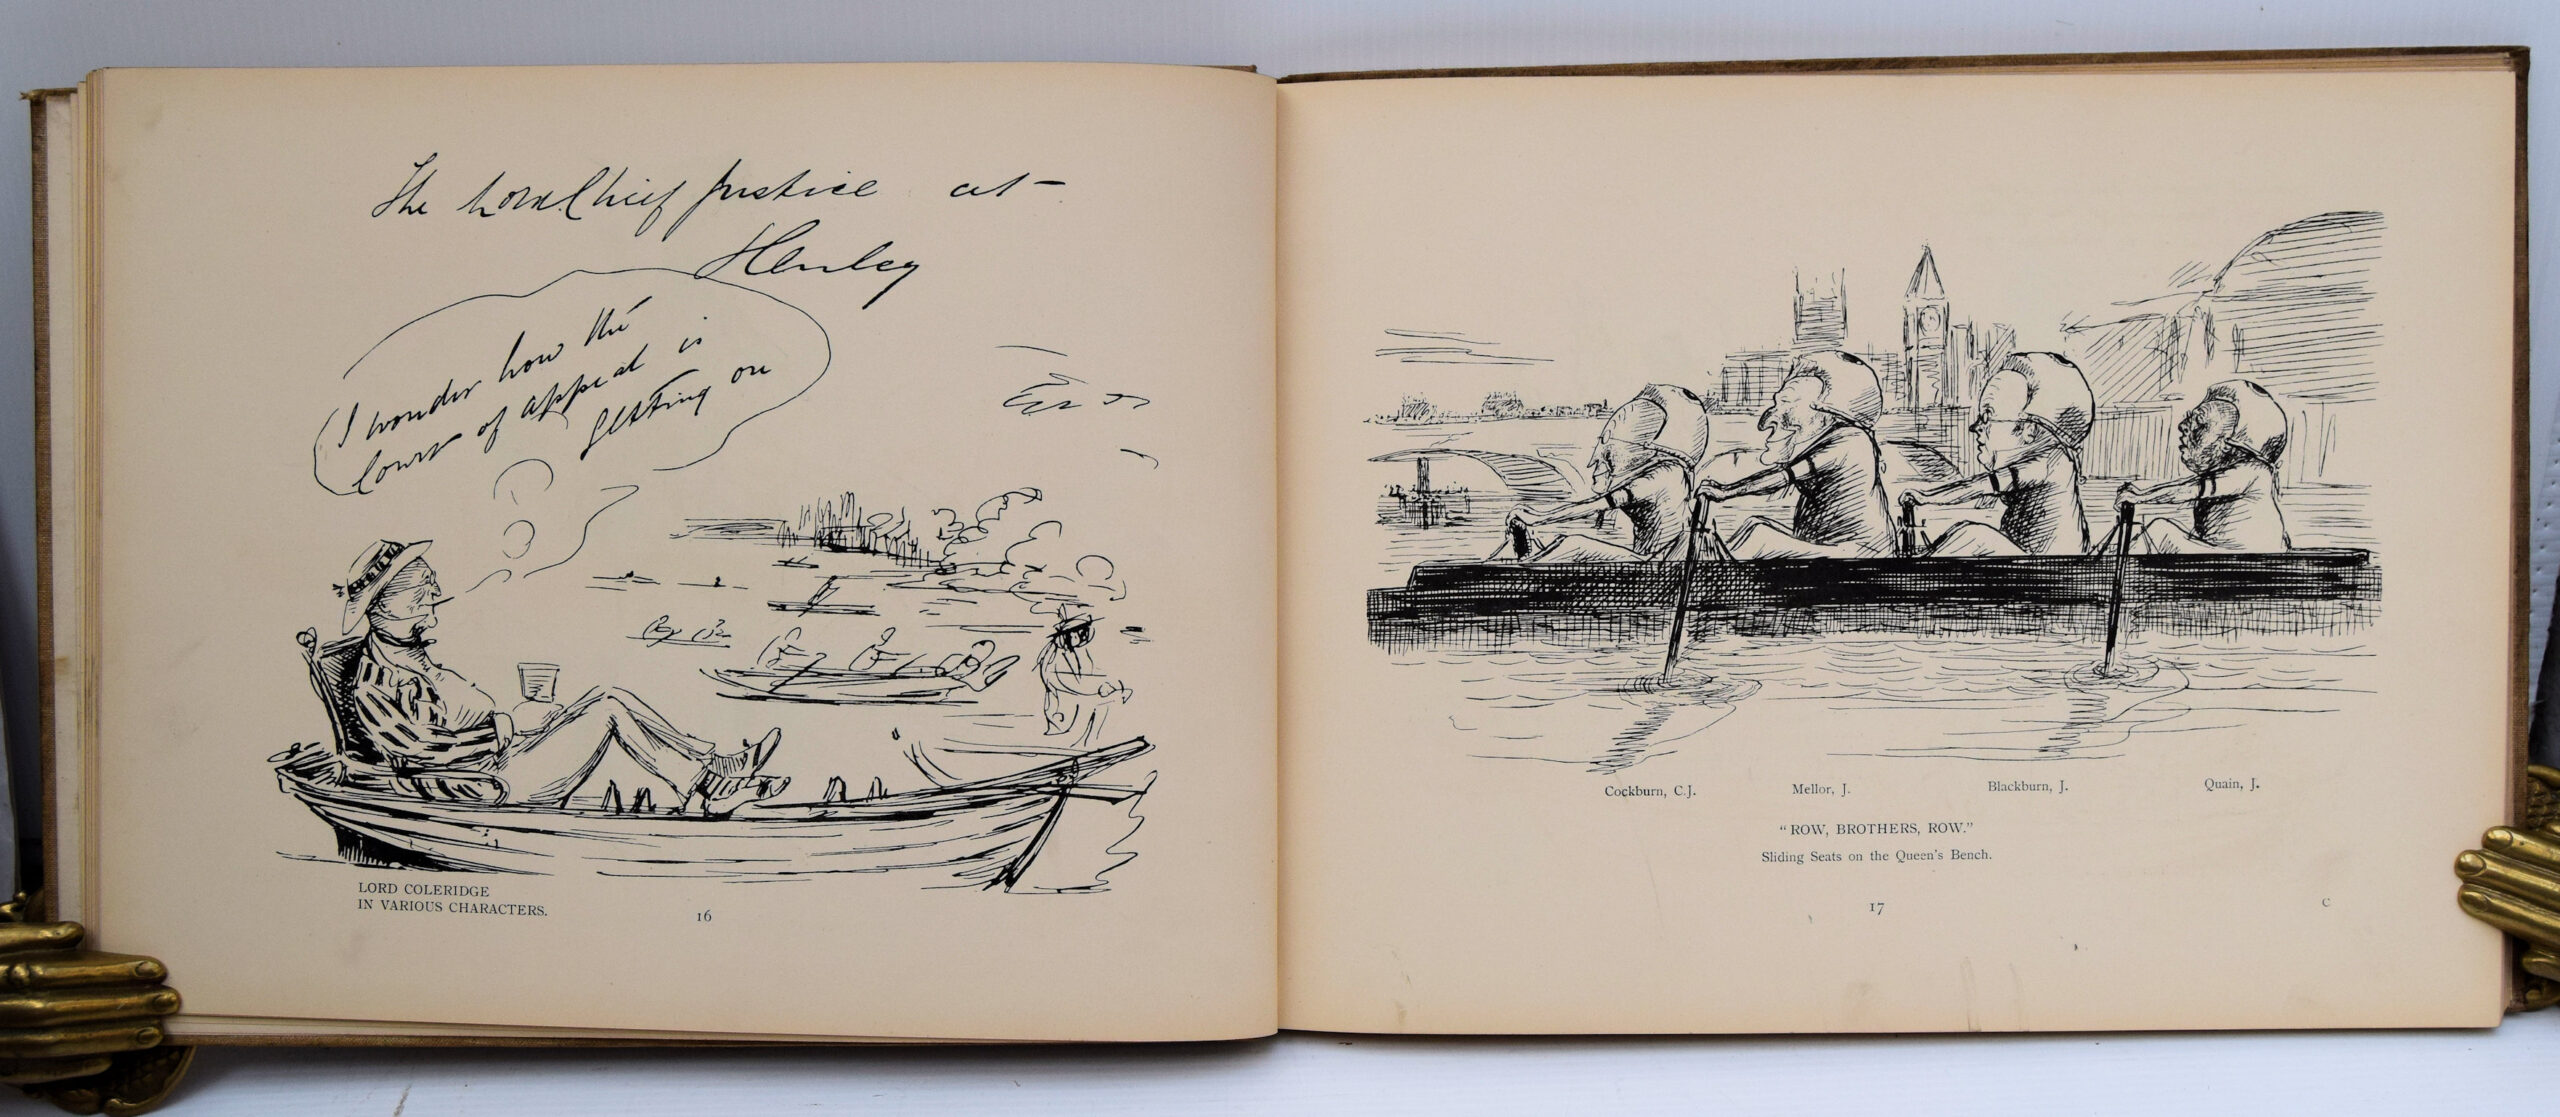 The Lord Chief Justice at
Henley
I wonder how the
Court of appeal is
getting on
LORD COLERIDGE
IN VARIOUS CHARACTERS.
16
Cockburn, C.J. Mellor, J. Blackburn, J. Quain, J.
"ROW, BROTHERS, ROW."
Sliding Seats on the Queen's Bench.
17
C